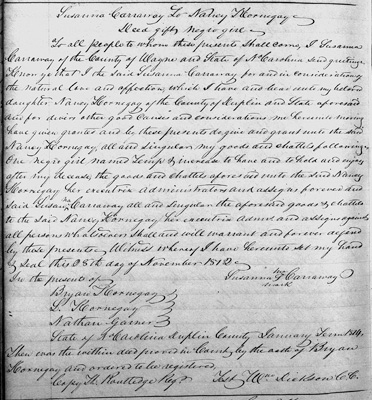 Susanna Carraway To Nancy Hornegay
Deed gift negro girl
To all people to whom these presents Shall come, I Susanna
Carraway of the County of Wayne and State of N Carolina send greeting
Know ye that I the Said Susanna Carraway for and in consideration of
the natural love and affection which I have and bear unto my beloved
daughter Nancy Hornegay of the County of Duplin and State aforesaid
and for divers other good Causes and considerations me hereunto moving
have given granted and by these presents do give and grant unto the said
Nancy Hornegay, all and Singular my goods and chattels following
One negro girl named & increase to have and to hold and enjoy
after my decease, the goods and chattels aforesaid unto the Said Nancy
Hornegay her executors Administrators and assigns forever and
Said Susanna Carraway all and Singular the aforesaid goods & chattels
to the Said Nancy Hornegay her executors Admrs and assigns against
all persons whatsoever Shall and will warrant and forever defend
by these presents Witness whereof I have hereunto Set my hand
& Seal this 28th day of November 1812
In the presents of Susanna Carraway
mark
Bryan Hornegay
L. Hornegay
Nathan Garner
State of N Carolina Duplin County January Term 1814
Then was the within deed proved in Court, by the oath of Bryan
Hornegay and ordered to be registered
Copy H. Routledge Regr Test Wm Dickson C.C.